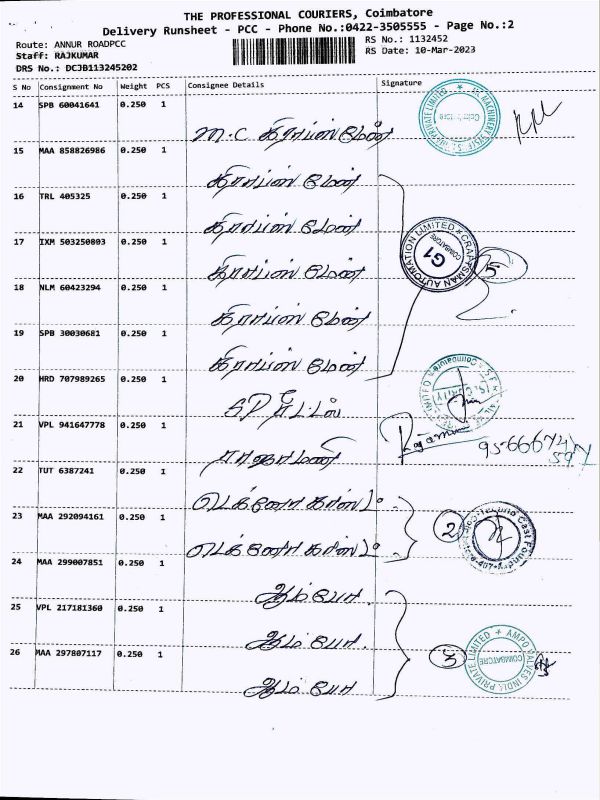 THE PROFESSIONAL COURIERS, Coimbatore
Delivery Runsheet - PCC - Phone No.:0422-3505555 - Page No.:2
Route: ANNUR ROADPCC
RS No.: 1132452
Staff: RAJKUMAR
RS Date: 10-Mar-2023
DRS No.: DCJB113245202
S No Consignment No Weight PCS Consignee Details Signature
14 SPB 60041641 0.250 1
M.C கிராப்ஸ் மேன்
15 MAA 858826986 0.250 1
கிராப்ஸ் மேன்
16 TRL 405325 0.250 1
கிராப்ஸ் மேன்
17 IXM 503250803 0.250 1
கிராப்ஸ் மேன்
CRAFTSMAN AUTOMATION LIMITED
COIMBATORE
G1
5
18 NLM 60423294 0.250 1
கிராப்ஸ் மேன்
19 SPB 30030681 0.250 1
கிராப்ஸ் மேன்
20 HRD 707989265 0.250 1
21 VPL 941647778 0.250 1
ராஜாமணி
22 TUT 6387241 0.250 1
டெக்னோ காஸ்ட்
23 MAA 292094161 0.250 1
டெக்னோ காஸ்ட்
2
24 MAA 299007851 0.250 1
ஆம்போ
25 VPL 217181360 0.250 1
ஆம்போ
3
AMPO VALVES INDIA PRIVATE LIMITED
COIMBATORE
26 MAA 297807117 0.250 1
ஆம்போ